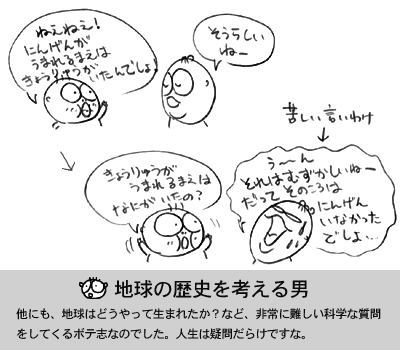 ねえねえ!
にんげんが
うまれるまえは
きょうりゅうが
いたんでしょ
そうらしい
ねー
苦しい言いわけ
きょうりゅうが
うまれるまえは
なにがいたの?
う〜ん
それはむずかしいねー
だって そのころは
にんげん
いなかった
でしょ…
地球の歴史を考える男
他にも、地球はどうやって生まれたか?など、非常に難しい科学な質問
をしてくるポテ志なのでした。人生は疑問だらけですな。